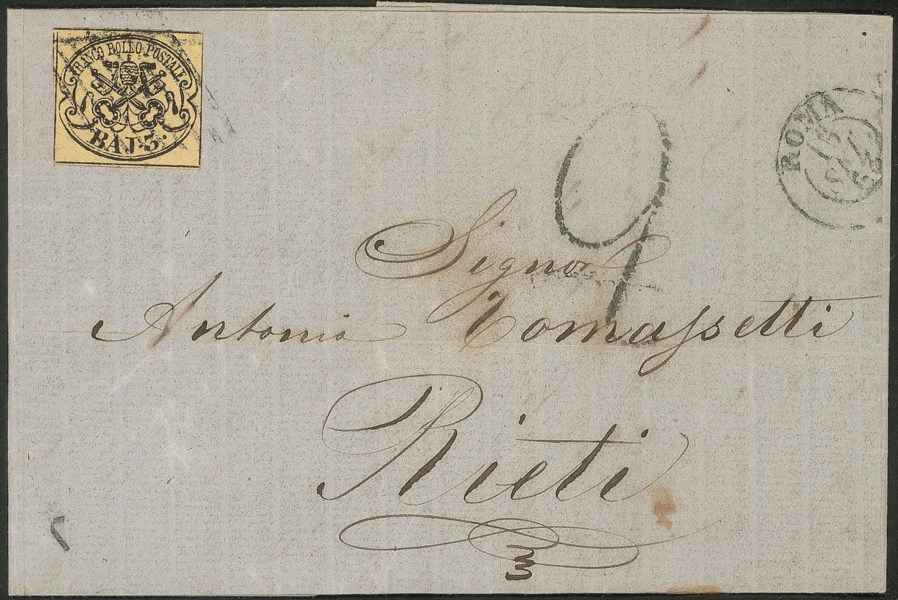 FRANCO BOLLO POSTALE
BAJ: 3.
ROMA
18
62
9
Signor
Antonio Tomassetti
Rieti